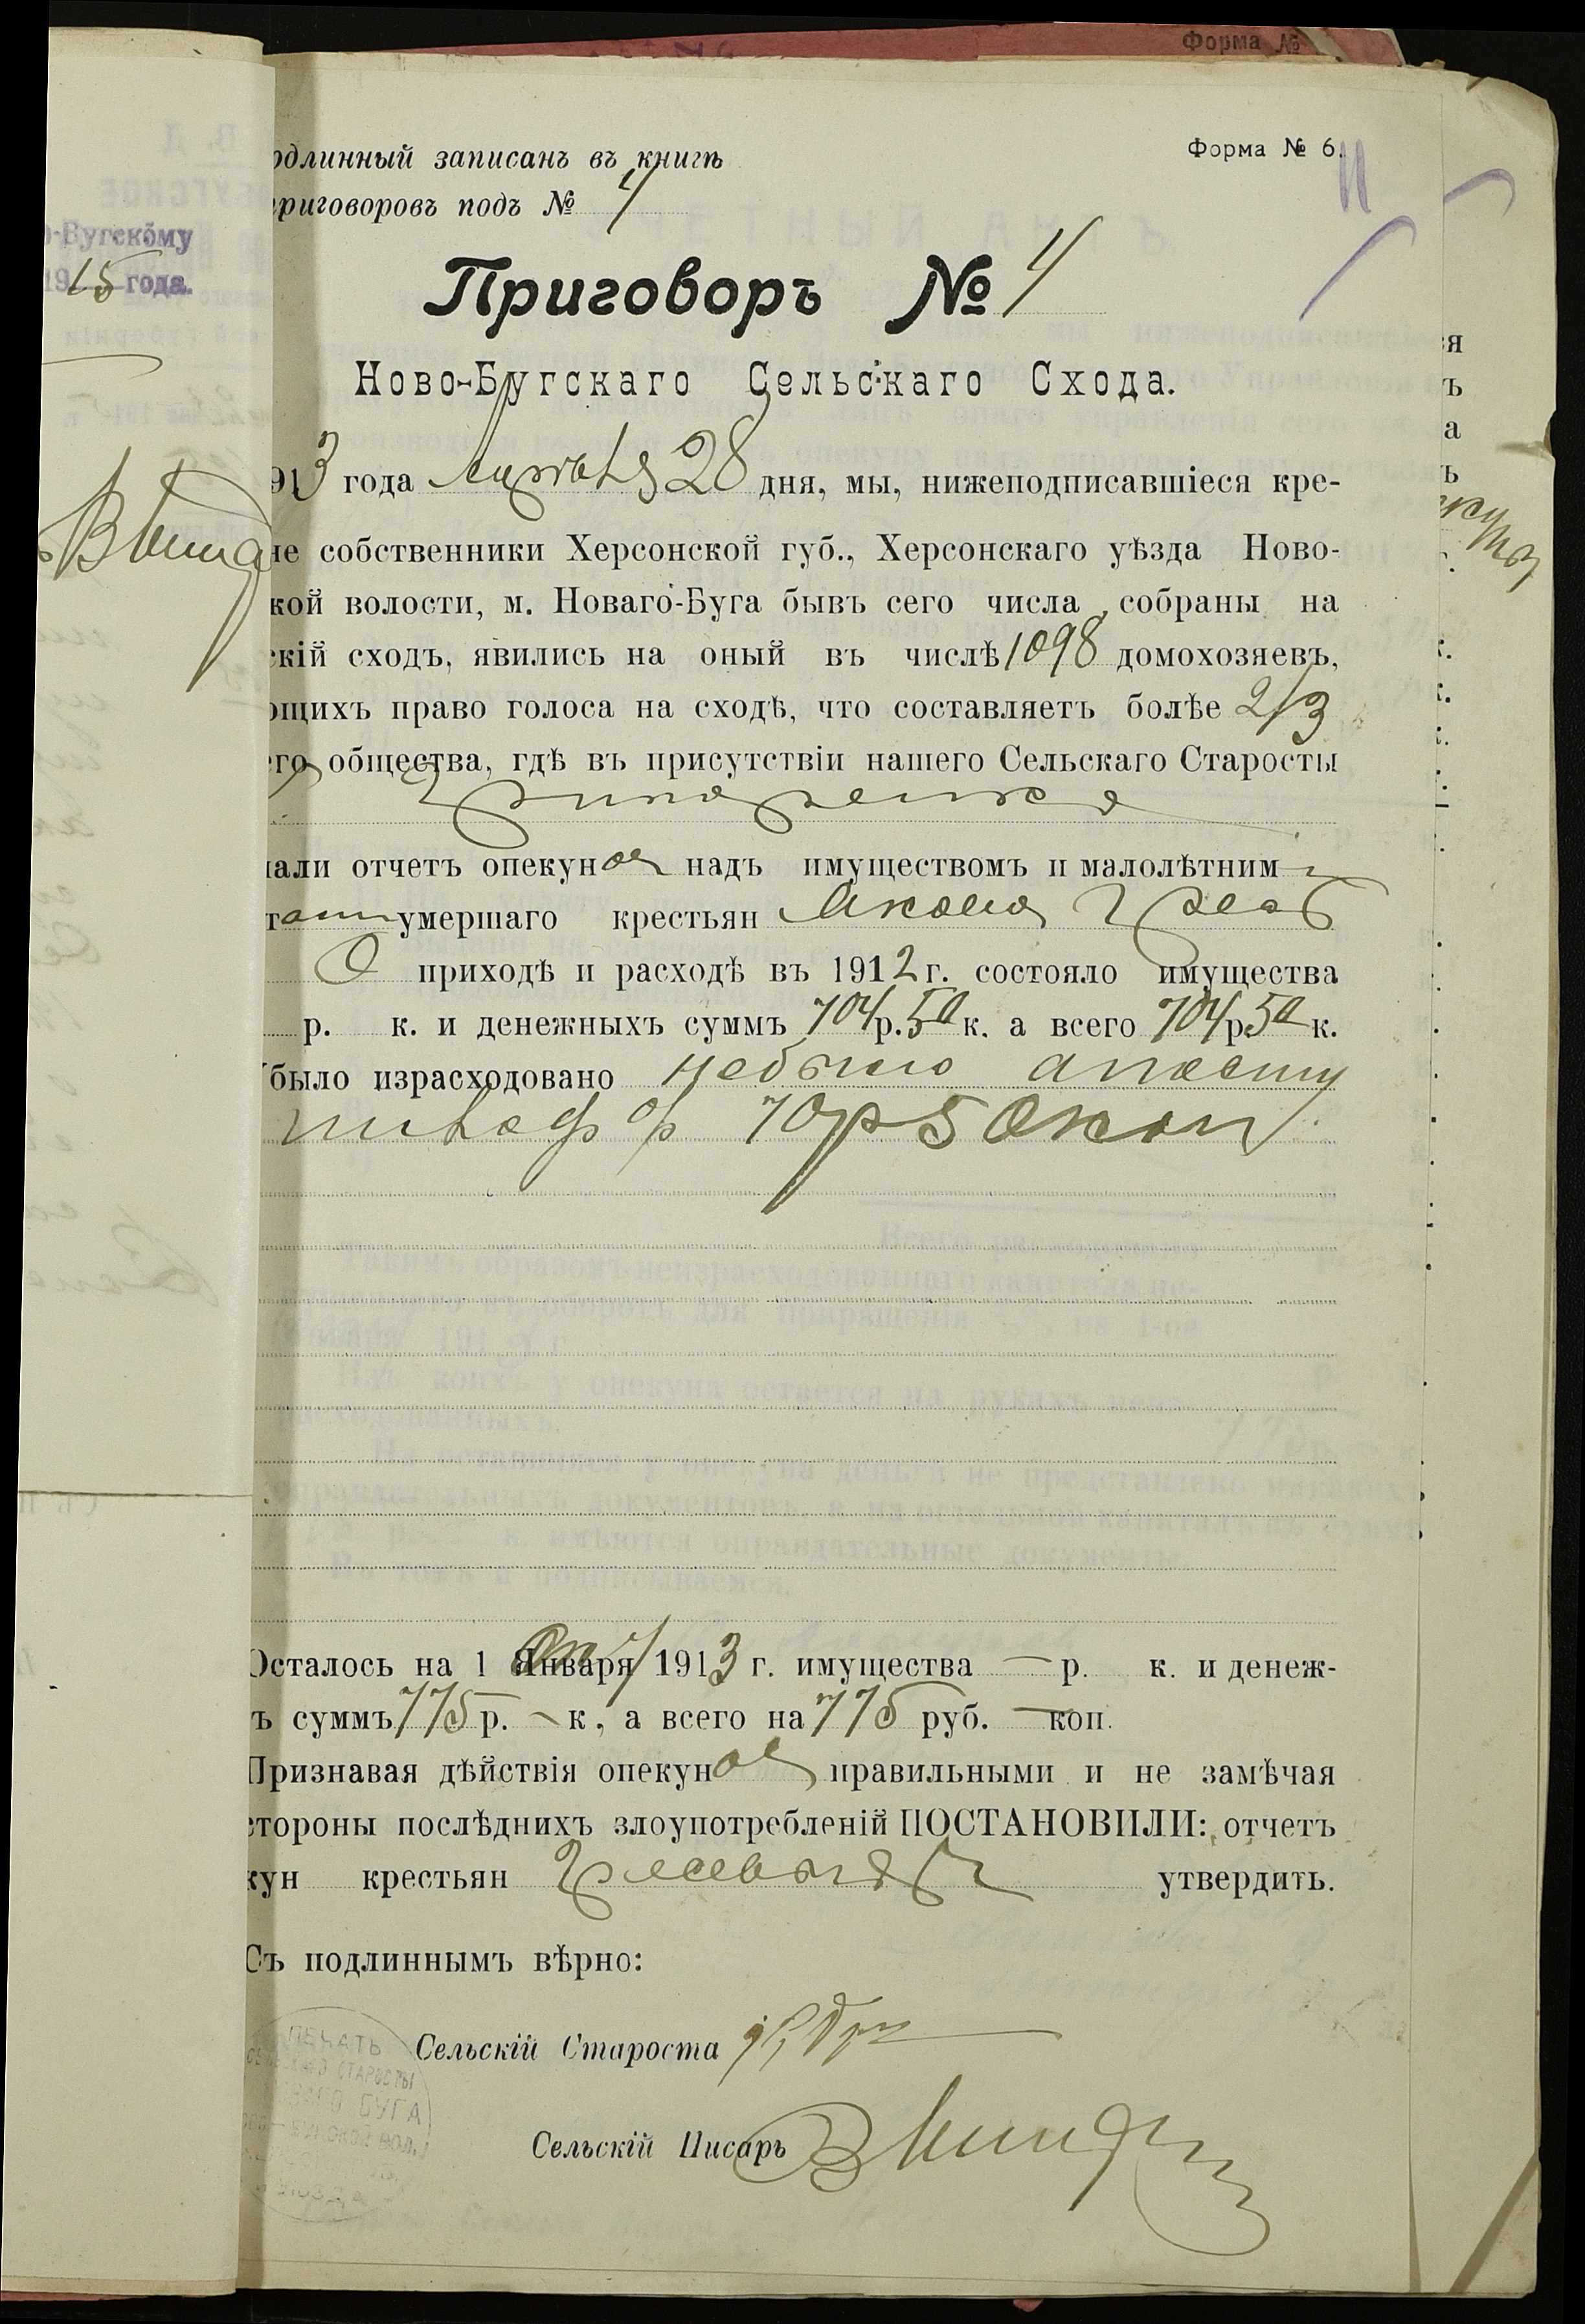 Форма №
одлинный записанъ въ книгѣ
риговоровъ подъ № 4
Форма № 6.
11
-Бугскому
19 15 года.
Приговоръ № 4
Ново-Бугскаго Сельскаго Схода.
913 года Апрѣля 28 дня, мы, нижеподписавшіеся кре-
не собственники Херсонской губ., Херсонскаго уѣзда Ново-
кой волости, м. Новаго-Буга бывъ сего числа собраны на
скій сходъ, явились на оный въ числѣ 1098 домохозяевъ,
ющихъ право голоса на сходѣ, что составляетъ болѣе 2/3
го общества, гдѣ въ присутствіи нашего Сельскаго Старосты
али отчетъ опекуновъ надъ имуществомъ и малолѣтним
умершаго крестьян Якова
О приходѣ и расходѣ въ 1912 г. состояло имущества
р. к. и денежныхъ суммъ 704 р. 50 к. а всего 704 р 50 к.
было израсходовано небыло а
70 р 50 коп
Осталось на 1 Января 1913 г. имущества — р. к. и денеж-
ъ суммъ 775 р. — к, а всего на 775 руб. — коп.
Признавая дѣйствія опекуновъ правильными и не замѣчая
стороны послѣднихъ злоупотребленій ПОСТАНОВИЛИ: отчетъ
кун крестьян утвердить.
Съ подлиннымъ вѣрно:
Сельскій Староста
ПЕЧАТЬ
СТАРОСТЫ
БУГА
Сельскій Писарь